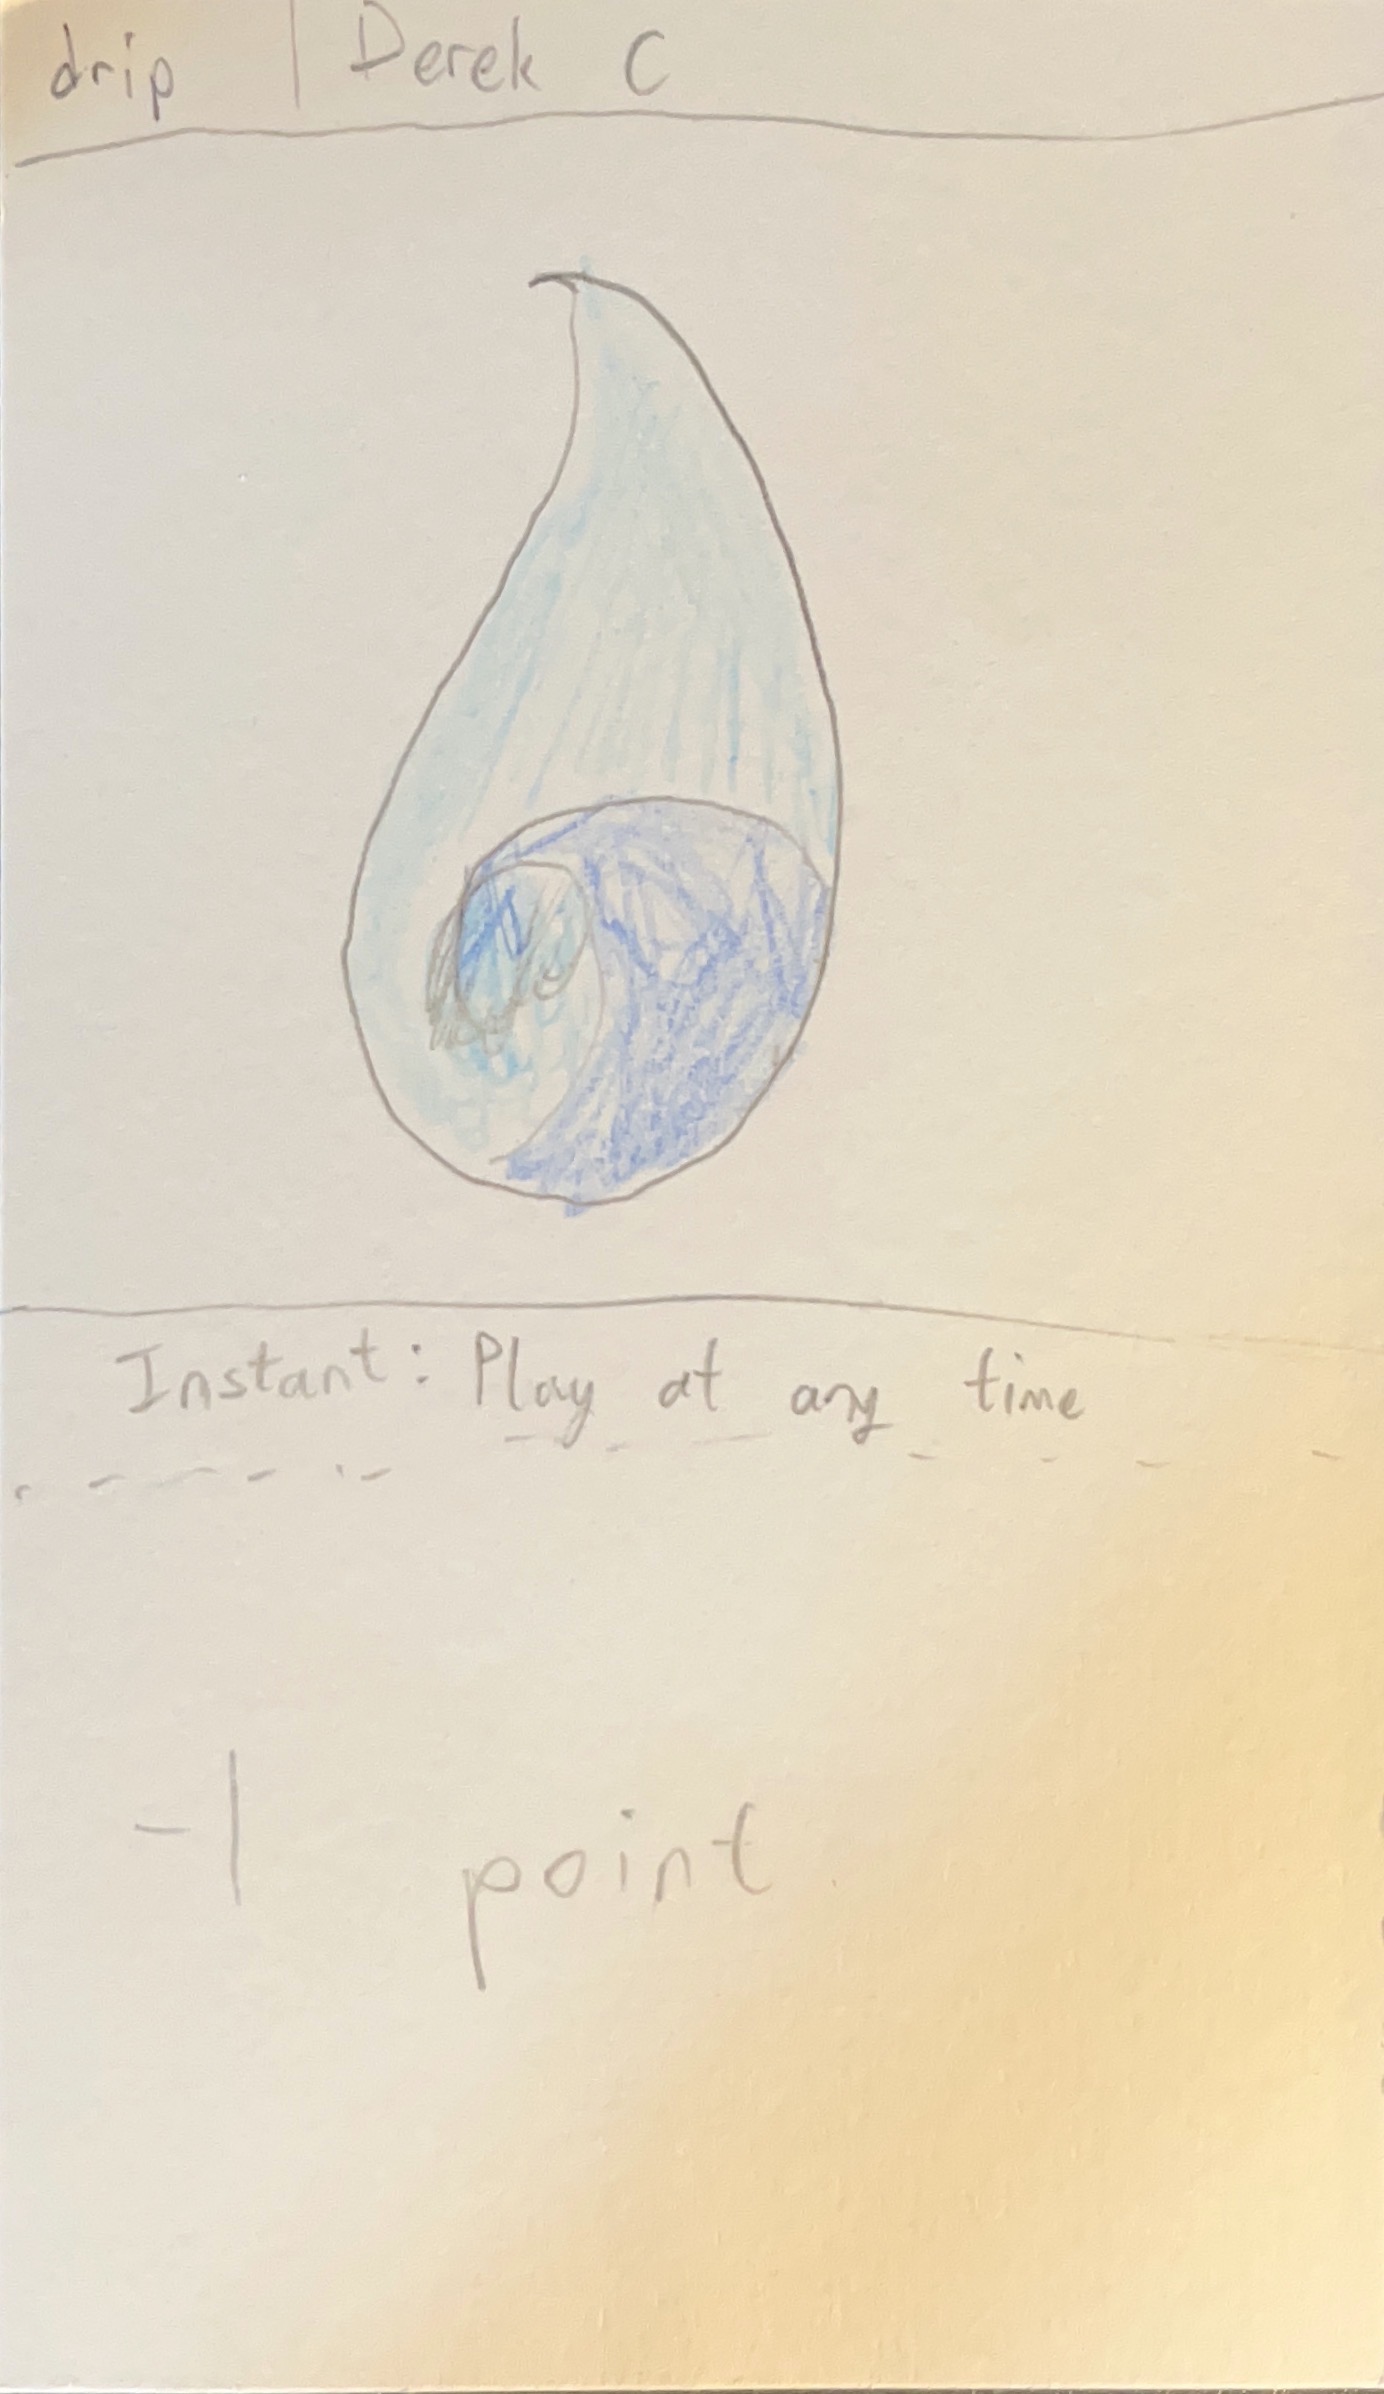 drip | Derek C
Instant: Play at any time
-1 point